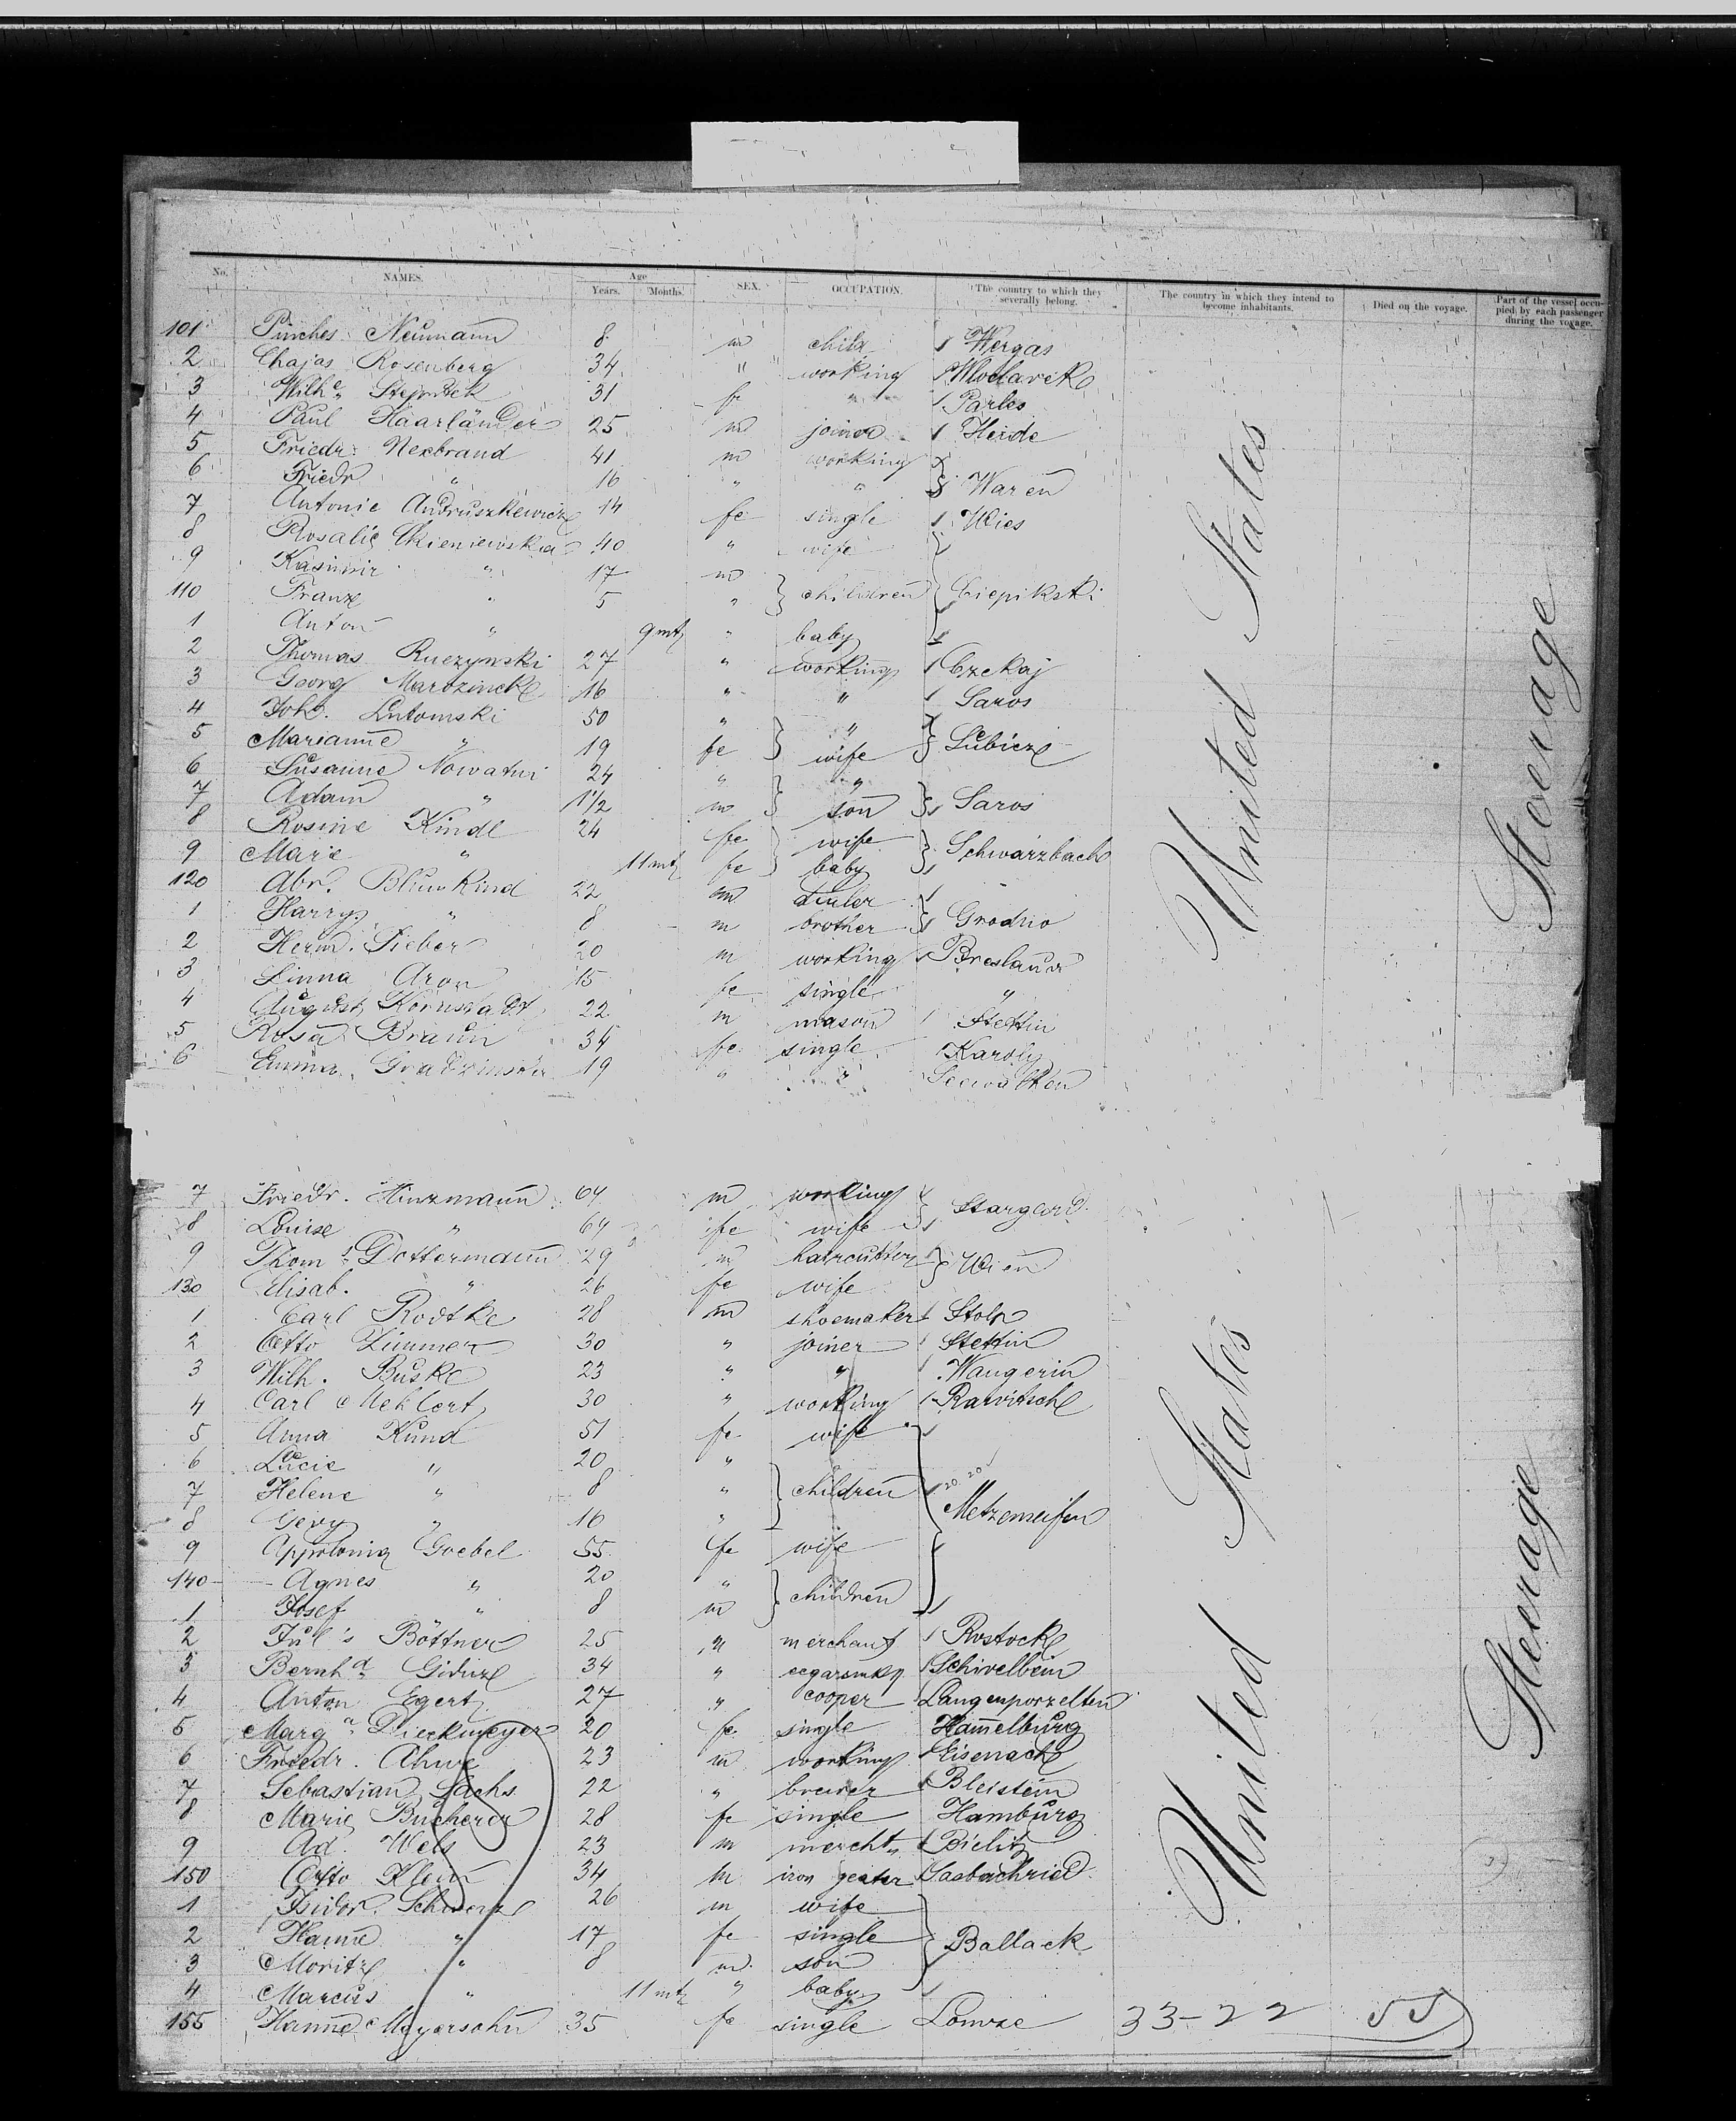 No. NAMES. Age Years. Months. SEX. OCCUPATION. The country to which they severally belong. The country in which they intend to become inhabitants. Died on the voyage. Part of the vessel occupied by each passenger during the voyage.
101 Pinches Neumann 8 m child Wergas
2 Chajas Rosenberg 34 " working Wloclavek
3 Wilhe 31 fe " Parlos
4 Paul Haarländer 25 m joiner Heide
5 Friedr. Nexbrand 41 m working
6 Friedr " 16 " " Waren
7 Antonie Andruszkewicz 14 fe single Wies
8 Rosalie Skieniewska 40 " wife
9 Kasimir " 17 m
110 Franz " 5 " children Ciepikski
1 Anton " 9 mt " baby
2 Thomas Ruczynski 27 " working Czekaj
3 Georg Marozinck 16 " " Saros
4 Joh. Lutomski 50 " "
5 Marianne " 19 fe wife Lubicz
6 Susanne 24 " "
7 Adam " 1 1/2 m son Saros
8 Rosine Kindl 24 fe wife Schwarzbach
9 Marie " 11 mt fe baby
120 Abr. Blumkind 22 m
1 Harry " 8 m brother Grodno
2 Herm. Sieber 20 m working Breslau
3 Linna Aron 15 fe single "
4 August Kornstadt 22 m mason Stettin
5 Rosa Braun 34 fe single Karoly
6 Emma 19 " "
United States
Steerage
7 Friedr. Hinzmann 64 m working Stargard
8 Louise " 64 fe wife
9 Thoms Dottermann 29 m haircutter Wien
130 Elisab. " 26 fe wife
1 Carl Rodtke 28 m shoemaker Stolp
2 Otto Zimmer 30 " joiner Stettin
3 Wilh. Buske 23 " " Wangerin
4 Carl Mehlert 30 " working Rawitsch
5 Anna Kund 51 fe wife
6 Lucie " 20 "
7 Helene " 8 " children
8 Gevy " 16 " Metzenseifen
9 Appolonia Goebel 55 fe wife
140 Agnes " 20 " children
1 Josef " 8 m
2 Jul's Böttner 25 m merchant Rostock
3 Bernhd 34 " Schivelbein
4 Anton Egert 27 " cooper Langenporzelten
5 Marga Dieckmeyer 20 fe single Hammelburg
6 Friedr. Ahwe 23 m working Eisenach
7 Sebastian Sachs 22 " brewer Bleistein
8 Marie Bucherer 28 fe single Hamburg
9 Ad. Wels 23 m mercht Bielitz
150 Otto Klein 34 m iron Sasbachried
1 Isidor Schwarz 26 m wife
2 Hanne " 17 fe single Ballack
3 Moritz " 8 m son
4 Marcus " 11 mt " baby
155 Hanne Meyersohn 35 fe single Lomze 33-22 55
United States
Steerage